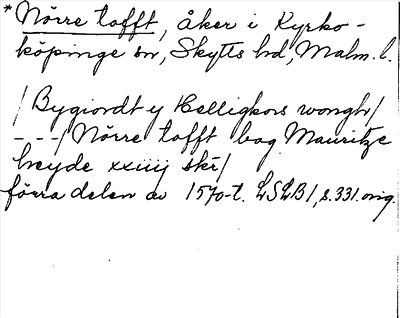 *Nörre tofft, åker i Kyrko-
köpinge sn, Skytts hd, Malm. l.
/Bygiordt y Helligkors wongh/
---/Nörre tofft bag Mauritze
heyde xxiiij skr/
förra delen av 1570-t. LSLB1, s. 331. orig.